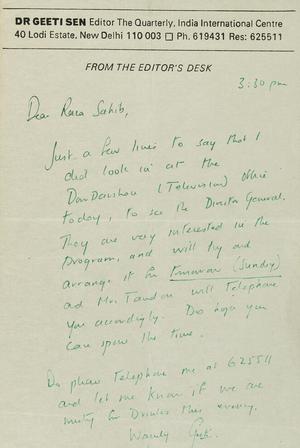 DR GEETI SEN Editor The Quarterly, India International Centre
40 Lodi Estate, New Delhi 110 003 □ Ph. 619431 Res: 625511
FROM THE EDITOR'S DESK
3:30 pm
Dear Raza Sahib,
Just a few lines to say that I
did look in at the
DoorDarshan (Television) Office
today, to see the Director General.
They are very interested in the
program, and will try and
arrange it for (Sunday)
ad Mr. Tandon will telephone
you accordingly. Do hope you
can spare the time.
Do please telephone me at 625511
and let me know if we are
meeting for Drinks this evening.
Warmly Geeti